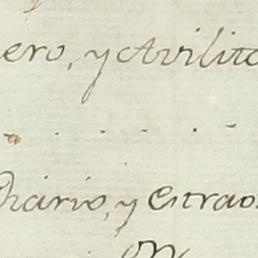 ero, y Avilita
Diario, y Estrao